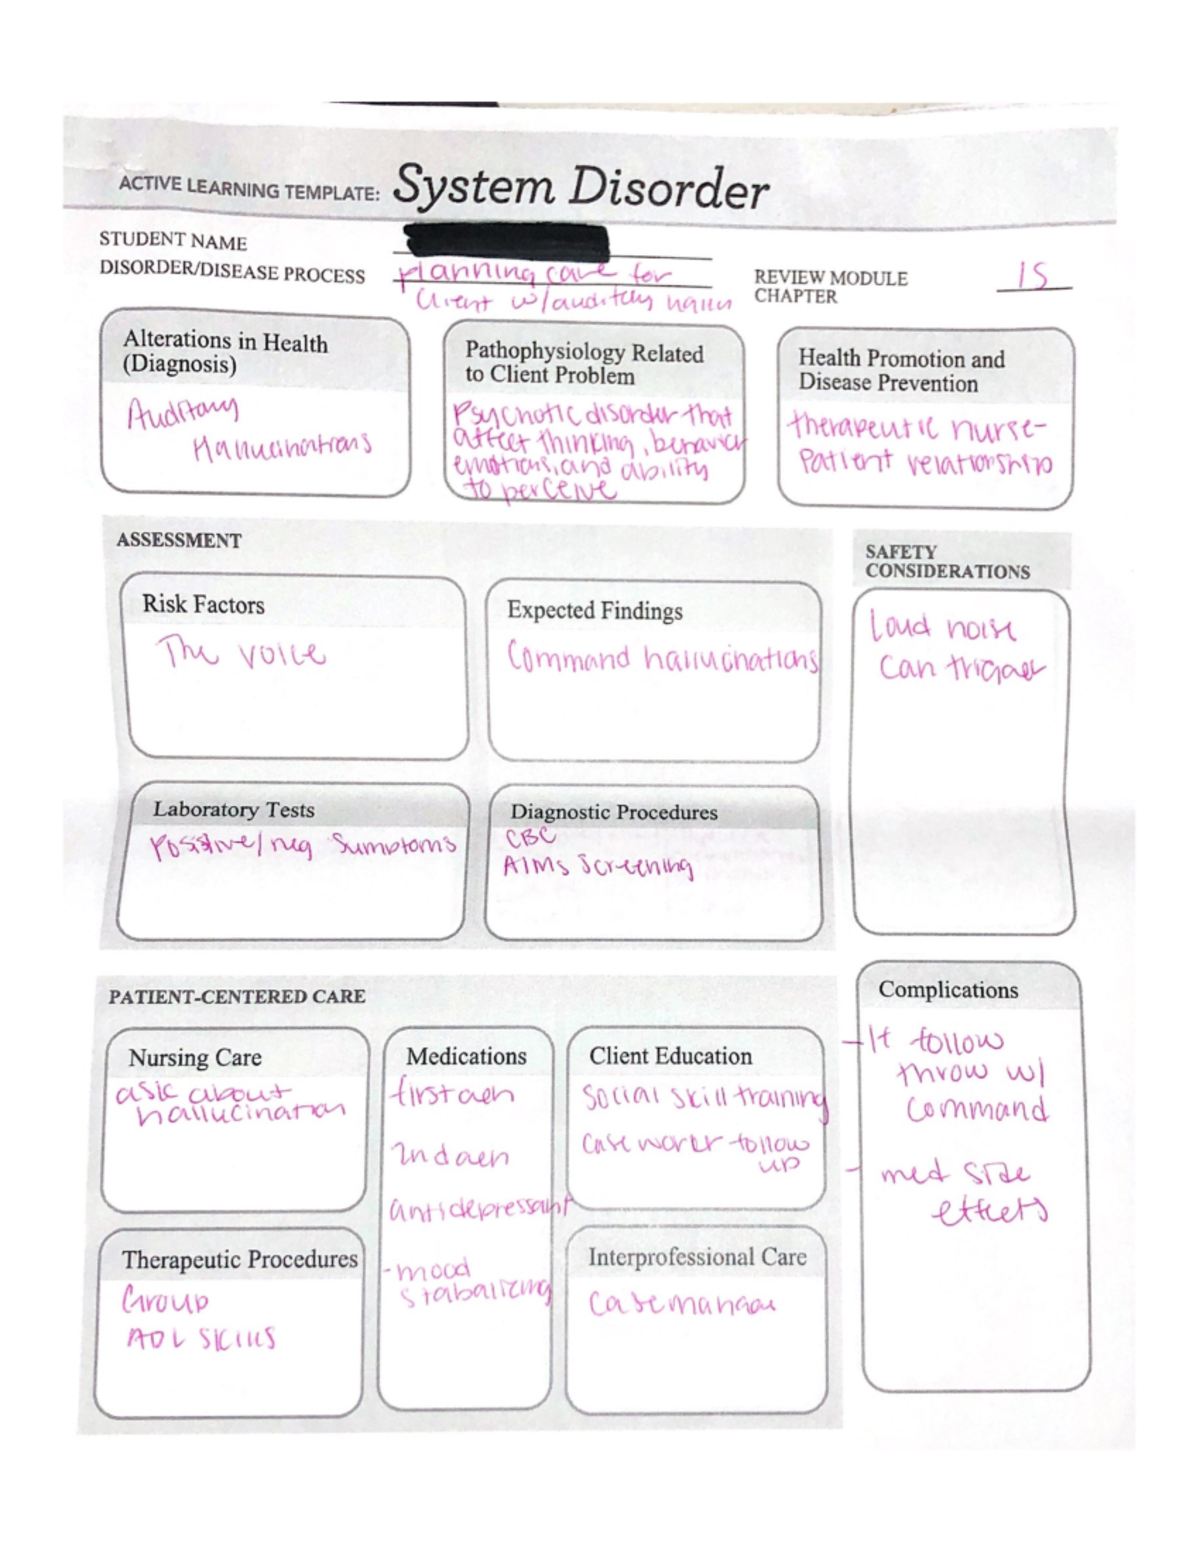 ACTIVE LEARNING TEMPLATE: System Disorder
STUDENT NAME
DISORDER/DISEASE PROCESS planning care for
client w/auditory hallu
REVIEW MODULE
CHAPTER 15
Alterations in Health
(Diagnosis)
Auditory
Hallucinations
Pathophysiology Related
to Client Problem
Psychotic disorder that
affect thinking, behavior
emotions, and ability
to perceive
Health Promotion and
Disease Prevention
therapeutic nurse-
Patient relationship
ASSESSMENT
Risk Factors
The voice
Expected Findings
Command hallucinations
SAFETY
CONSIDERATIONS
Loud noise
can trigger
Laboratory Tests
Positive/neg Sumptoms
Diagnostic Procedures
CBC
AIMs Screening
PATIENT-CENTERED CARE
Nursing Care
ask about
hallucination
Medications
first gen
2nd gen
antidepressant
-mood
stabalizing
Client Education
Social skill training
case worer follow
up
Complications
-If follow
throw w/
command
- med side
effects
Therapeutic Procedures
Group
ADL skills
Interprofessional Care
case manager